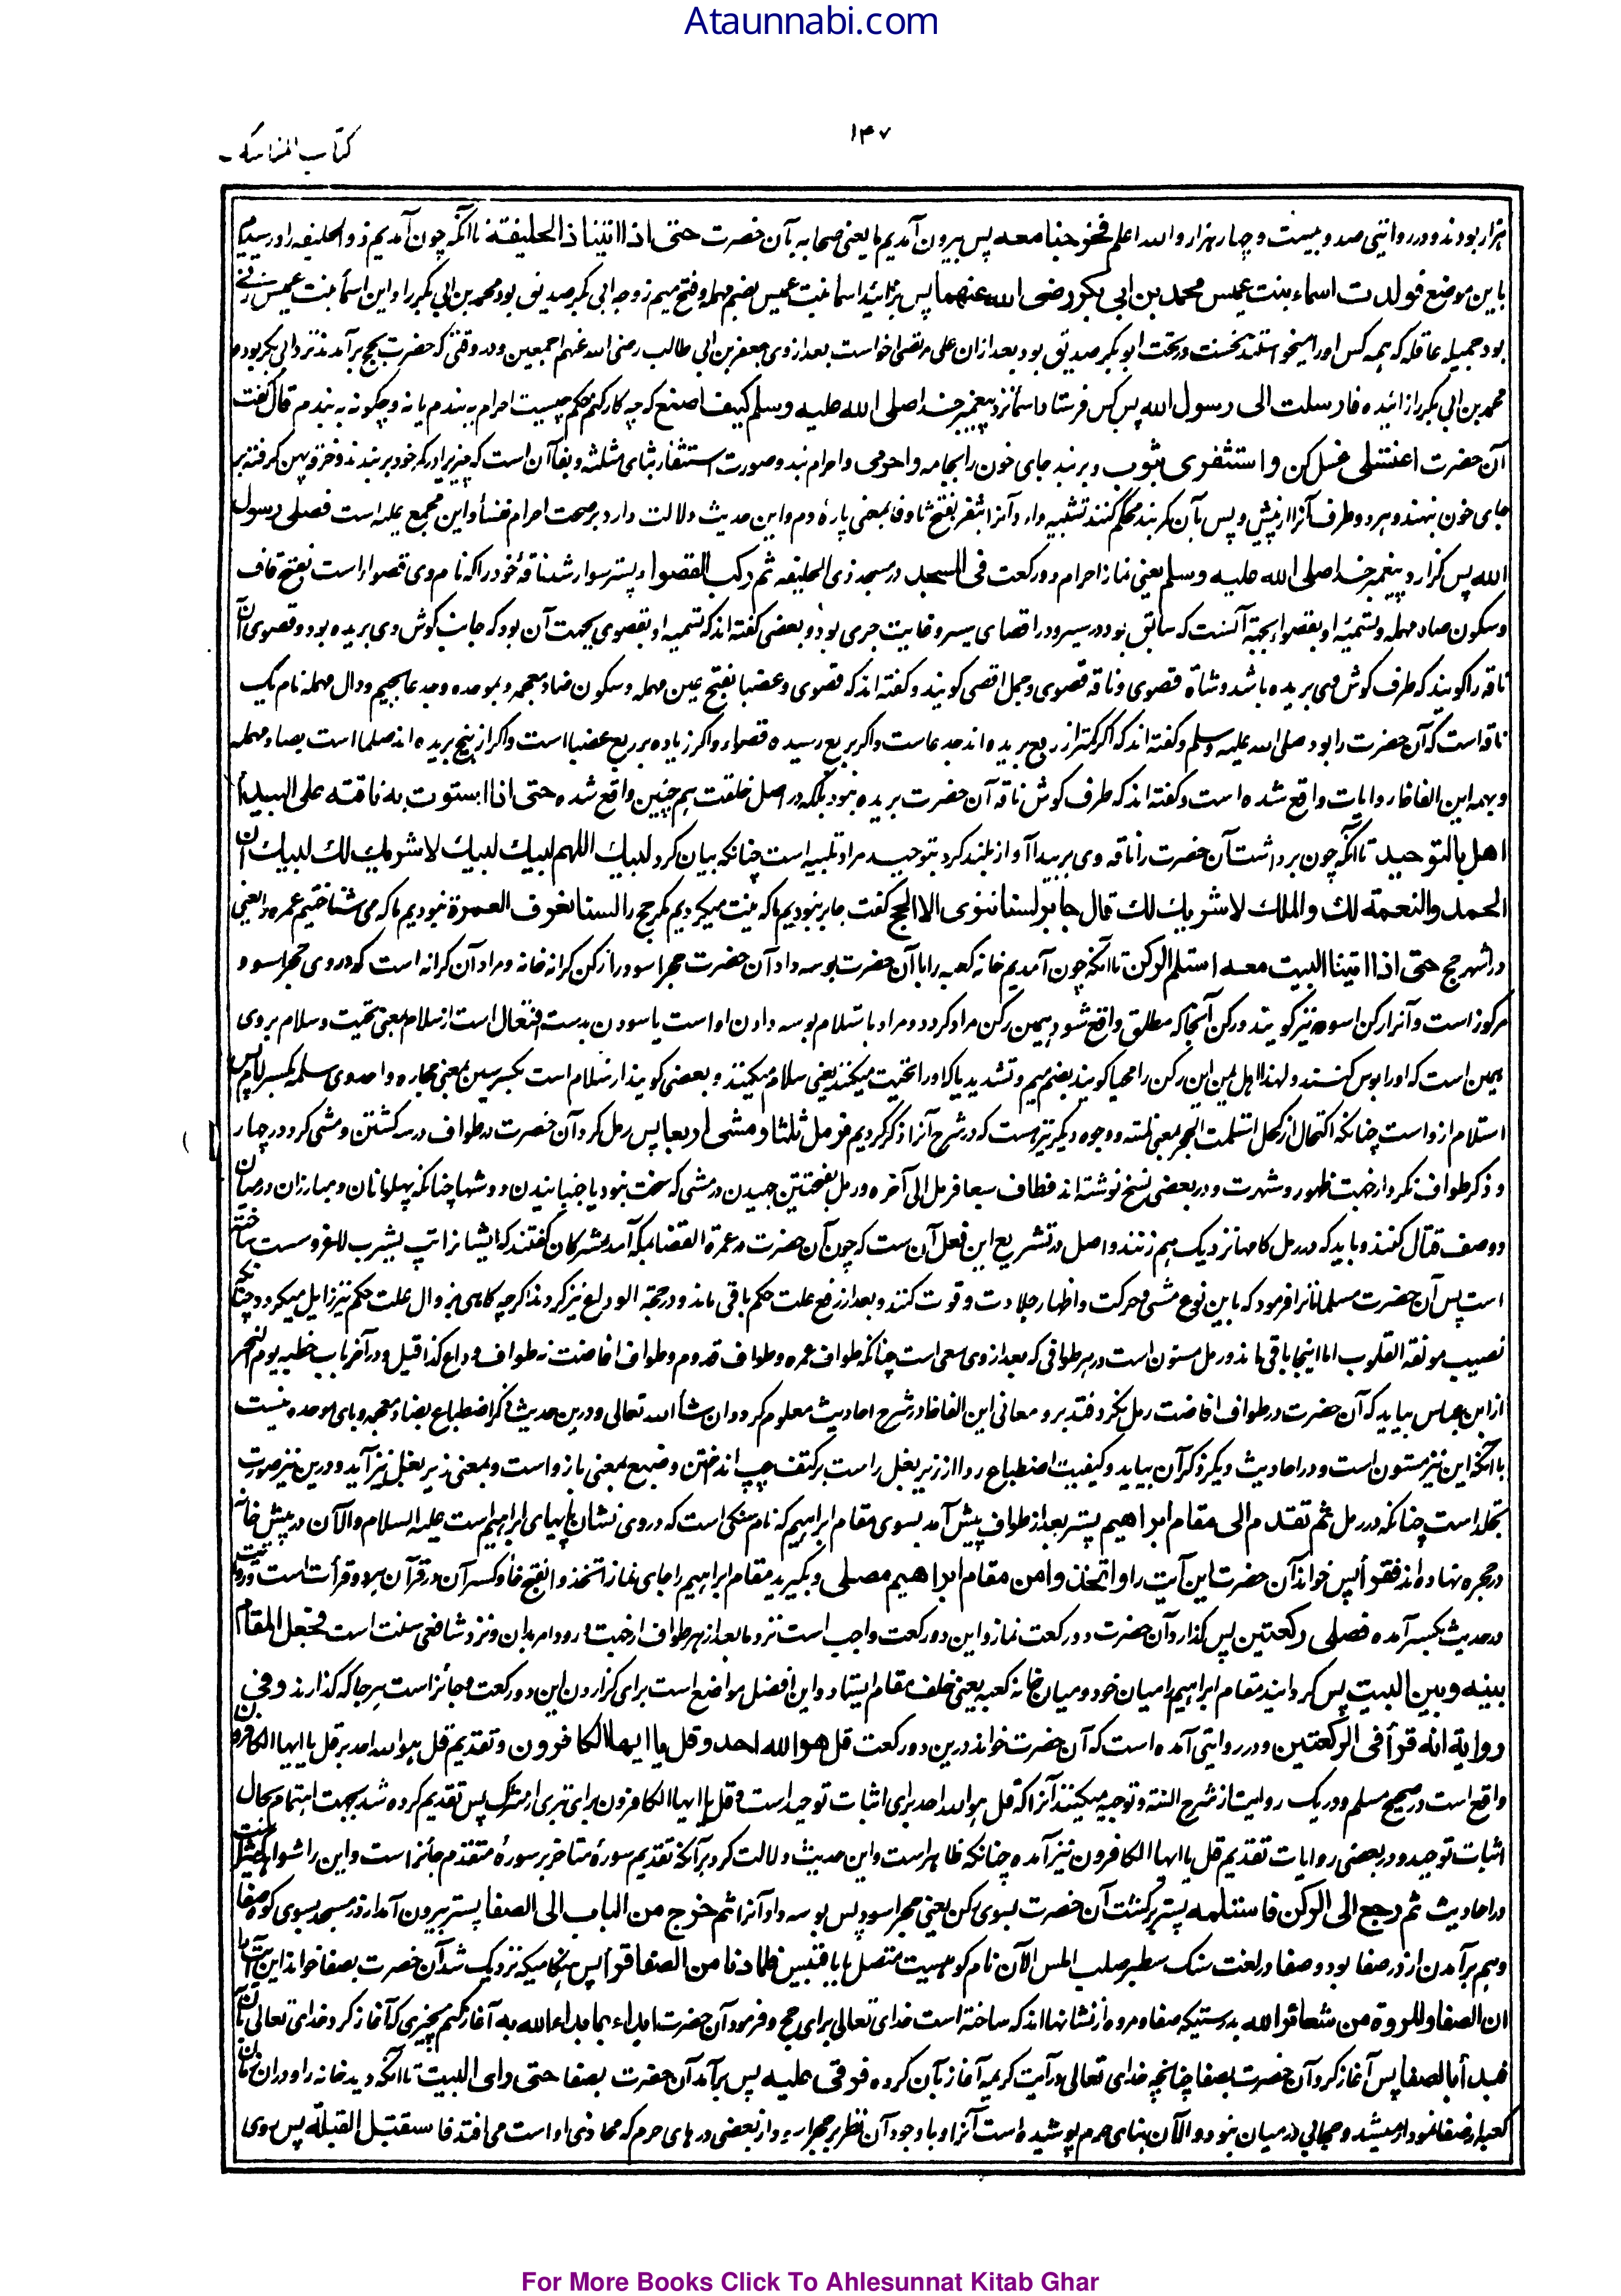 Ataunnabi.com
۱۴۷
کتاب المناسک
هزار بودند و در روایتی صد و بیست و چهار هزار والله اعلم فخرجنا معه پس بیرون آمدیم ما یعنی صحابه بآن حضرت حتی اذا اتینا ذا الحلیفة تا آنکه چون آمدیم ذو الحلیفه را و رسیدیم
باین موضع فولدت اسماء بنت عمیس محمد بن ابی بکر رضی الله عنهما پس بزائید اسما بنت عمیس بضم مهمله و فتح میم زوجه ابی بکر صدیق بود محمد بن ابی بکر را و این اسما بنت عمیس زنے
بود جمیله عاقله که همه کس او را میخواستند نخست در تحت ابو بکر صدیق بود بعد ازان علی مرتضی خواست بعد از وی جعفر بن ابی طالب رضی الله عنهم اجمعین و در وقتی که حضرت بحج برآمدند نزد ابی بکر بود و
محمد بن ابی بکر را زائیده فارسلت الی رسول الله پس کس فرستاد اسما نزد پیغمبر خدا صلی الله علیه وسلم کیف اصنع که چه کار کنم حکم چیست احرام به بندم یا نه و چگونه به بندم قال گفت
آن حضرت اغتسلی غسل کن و استثفری بثوب و بر بند جای خون را بجامه واحرمی و احرام بند و صورت استثفار بثای مثلثه و بفا آن است که چیزی را در کمر خود بر بندند و خرقه پهن گرفته بر
جای خون بنهند و هر دو طرف آنرا از پیش و پس بآن کمربند محکم کنند تشبیه داد و آنرا بثفر بفتح ثا و فا بمعنی پارۀ دم و این حدیث دلالت دارد بر صحت احرام نفسا و این مجمع علیه است فصلی رسول
الله پس گزارد پیغمبر خدا صلی الله علیه وسلم یعنی نماز احرام دو رکعت فی المسجد در مسجد ذی الحلیفه ثم رکب القصواء پستر سوار شد ناقۀ خود را که نام وی قصواء است بفتح قاف
و سکون صاد مهمله و تسمیۀ او بقصواء بجهة آنست که سابق بود در سیر و در اقصای سیر و غایت جری بود و بعضی گفته اند که تسمیه او بقصوی بجهت آن بود که جانب گوش وی بریده بود و قصوی آن
ناقه را گویند که طرف گوش وی بریده باشد و شاة قصوی و ناقه قصوی و جمل اقصی گویند و گفته اند که قصوی و عضبا بفتح عین مهمله و سکون ضاد معجمه و بموحده و جدعا بجیم و دال مهمله نام یک
ناقه است که آن حضرت را بود صلی الله علیه وسلم و گفته اند که اگر کمتر از ربع بریده اند جدعا ست و اگر بربع رسیده قصواء و اگر زیاده بر ربع عضبا است و اگر از بیخ بریده اند صلما است بصاد مهمله
و همه این الفاظ در روایات واقع شده است و گفته اند که طرف گوش ناقه آن حضرت بریده نبود بلکه در اصل خلقت هم چنین واقع شده حتی اذا استوت به ناقته علی البیداء
اهل بالتوحید تا آنکه چون برداشت آن حضرت را ناقه وی بر بیدا آواز بلند کرد بتوحید مراد تلبیه است چنانکه بیان کرد لبیك اللهم لبیك لبیك لا شریك لك لبیك ان
الحمد والنعمة لك والملك لا شریك لك قال جابر لسنا ننوی الا الحج گفت جابر نبودیم ما که نیت میکردیم مگر حج را لسنا نعرف العمرة نبودیم ما که می شناختیم عمره را یعنی
در اشهر حج حتی اذا اتینا البیت معه استلم الرکن تا آنکه چون آمدیم خانه کعبه را با آن حضرت بوسه داد آن حضرت حجر اسود را رکن کرانه خانه و مراد آن کرانه است که در وی حجر اسود
مرکوز است و آنرا رکن اسود نیز گویند و رکن آنجا که مطلق واقع شود همین رکن مراد گردد و مراد باستلام بوسه دادن او است یا سودن بدست افتعال است از سلام بمعنی تحیت و سلام بروی
همین است که او را بوس کنند و لهذا اهل یمن این رکن را محیا گویند بضم میم و تشدید یا که او را تحیت میکنند یعنی سلام میکنند و بعضی گویند از سلام است بکسر سین بمعنی حجاره واحد وی سلمه بکسر لام پس
استلام ازو است چنانکه اکتحال از کحل استلمت الحجر بمعنی لمسته و وجوه دیگر نیز ست که در شرح آنرا ذکر کردیم فرمل ثلثا ومشی اربعا پس رمل کرد آن حضرت در طواف در سه گشتن و مشی کرد در چهار
و ذکر طواف نکرد از جهت ظهور و شهرت و در بعضی نسخ نوشته اند فطاف سبعا فرمل الی آخره و رمل بفتحتین جهیدن در مشی که سخت نبود با جنبانیدن دوشها چنانکه پهلوانان و مبارزان درمیان
دو صف قتال کنند و باید که در رمل گامها نزدیک هم زنند و اصل در تشریع این فعل آن ست که چون آن حضرت در عمرة القضا بمکه آمد مشرکان گفتند که ایشانرا تب یثرب لاغر و سست ساخته
است پس آن حضرت مسلمانانرا فرمود که باین نوع مشی و حرکت و اظهار جلادت و قوت کنند و بعد از رفع علت حکم باقی ماند و در حجة الوداع نیز کردند اگرچه گاهی بزوال علت حکم نیز زایل میگردد چنانکه
نصیب مولفة القلوب اما اینجا باقی ماند و رمل مسنون است در هر طوافی که بعد از وی سعی است چنانکه طواف عمره و طواف قدوم و طواف افاضت نه طواف وداع کذا قیل و در آخر باب خطبه یوم النحر
از ابن عباس بیاید که آن حضرت در طواف افاضت رمل نکرد فتدبر و معانی این الفاظ در شرح احادیث معلوم گردد ان شاء الله تعالی و درین حدیث ذکر اضطباع بضاد معجمه و بای موحده نیست
با آنکه این نیز مسنون است و در احادیث دیگر ذکر آن بیاید و کیفیت اضطباع ردا از زیر بغل راست بر کتف چپ انداختن و ضبع بمعنی بازو است و بمعنی زیر بغل نیز آید و درین نیز صورت
تجلد است چنانکه در رمل ثم تقدم الی مقام ابراهیم پستر بعد از طواف پیش آمد بسوی مقام ابراهیم که نام سنگی است که در وی نشان پایهای ابراهیم است علیه السلام والآن در پیش خانه
در حجره نهاده اند فقرأ پس خواند آن حضرت این آیت را واتخذوا من مقام ابراهیم مصلی و بگیرید مقام ابراهیم را جای نماز اتخذوا بفتح خا و کسر آن در قرآن هر دو قرأت است و روایت
در حدیث بکسر آمده فصلی رکعتین پس گذارد آن حضرت دو رکعت نماز و این دو رکعت واجب است نزد ما بعد از هر طواف از جهت ورود امر بدان و نزد شافعی سنت است فجعل المقام
بینه وبین البیت پس گردانید مقام ابراهیم را میان خود و میان خانه کعبه یعنی خلف مقام ایستاد و این افضل مواضع است برای گزاردن این دو رکعت و جائز است هر جا که گذارند وفی
روایة انه قرأ فی الرکعتین و در روایتی آمده است که آن حضرت خواند درین دو رکعت قل هو الله احد وقل یا ایها الکافرون و تقدیم قل هو الله احد بر قل یا ایها الکافرون
واقع است در صحیح مسلم و در یک روایت از شرح السنه و توجیه میکنند آنرا که قل هو الله احد برای اثبات توحید است و قل یا ایها الکافرون برای تبری از شرک پس تقدیم کرده شد بجهت اهتمام بحال
اثبات توحید و در بعضی روایات تقدیم قل یا ایها الکافرون نیز آمده چنانکه ظاهر است و این حدیث دلالت کرد بر آنکه تقدیم سورۀ متاخر بر سورۀ متقدم جائز است و این را شواهد
در احادیث ثم رجع الی الرکن فاستلمه پستر برگشت آن حضرت بسوی رکن یعنی حجر اسود پس بوسه داد آنرا ثم خرج من الباب الی الصفا پستر بیرون آمد از در مسجد بسوی کوه صفا
و هم برآمدن از در صفا بود و صفا در لغت سنگ سطبر صلب املس الآن نام کوهیست متصل بابا قبیس فلما دنا من الصفا قرأ پس هنگامیکه نزدیک شد آن حضرت بصفا خواند این آیت را
ان الصفا والمروة من شعائر الله بدرستیکه صفا و مروه از نشانها اند که ساخته است خدای تعالی برای حج و فرمود آن حضرت ابداء بما بداء الله به آغاز کنم بچیزی که آغاز کرد خدای تعالی بآن
فبدأ بالصفا پس آغاز کرد آن حضرت بصفا چنانچه خدای تعالی در آیت کریمه آغاز بآن کرده فرقی علیه پس برآمد آن حضرت بصفا حتی رای البیت تا آنکه دید خانه را و دران زمان
کعبه از صفا نمودار میشد و حجابی درمیان نبود و الآن بنای حرم پوشیده است آنرا و با وجود آن نظر بر حجر اسود از بعضی درهای حرم که محاذی او است می افتد فاستقبل القبلة پس روی
For More Books Click To Ahlesunnat Kitab Ghar